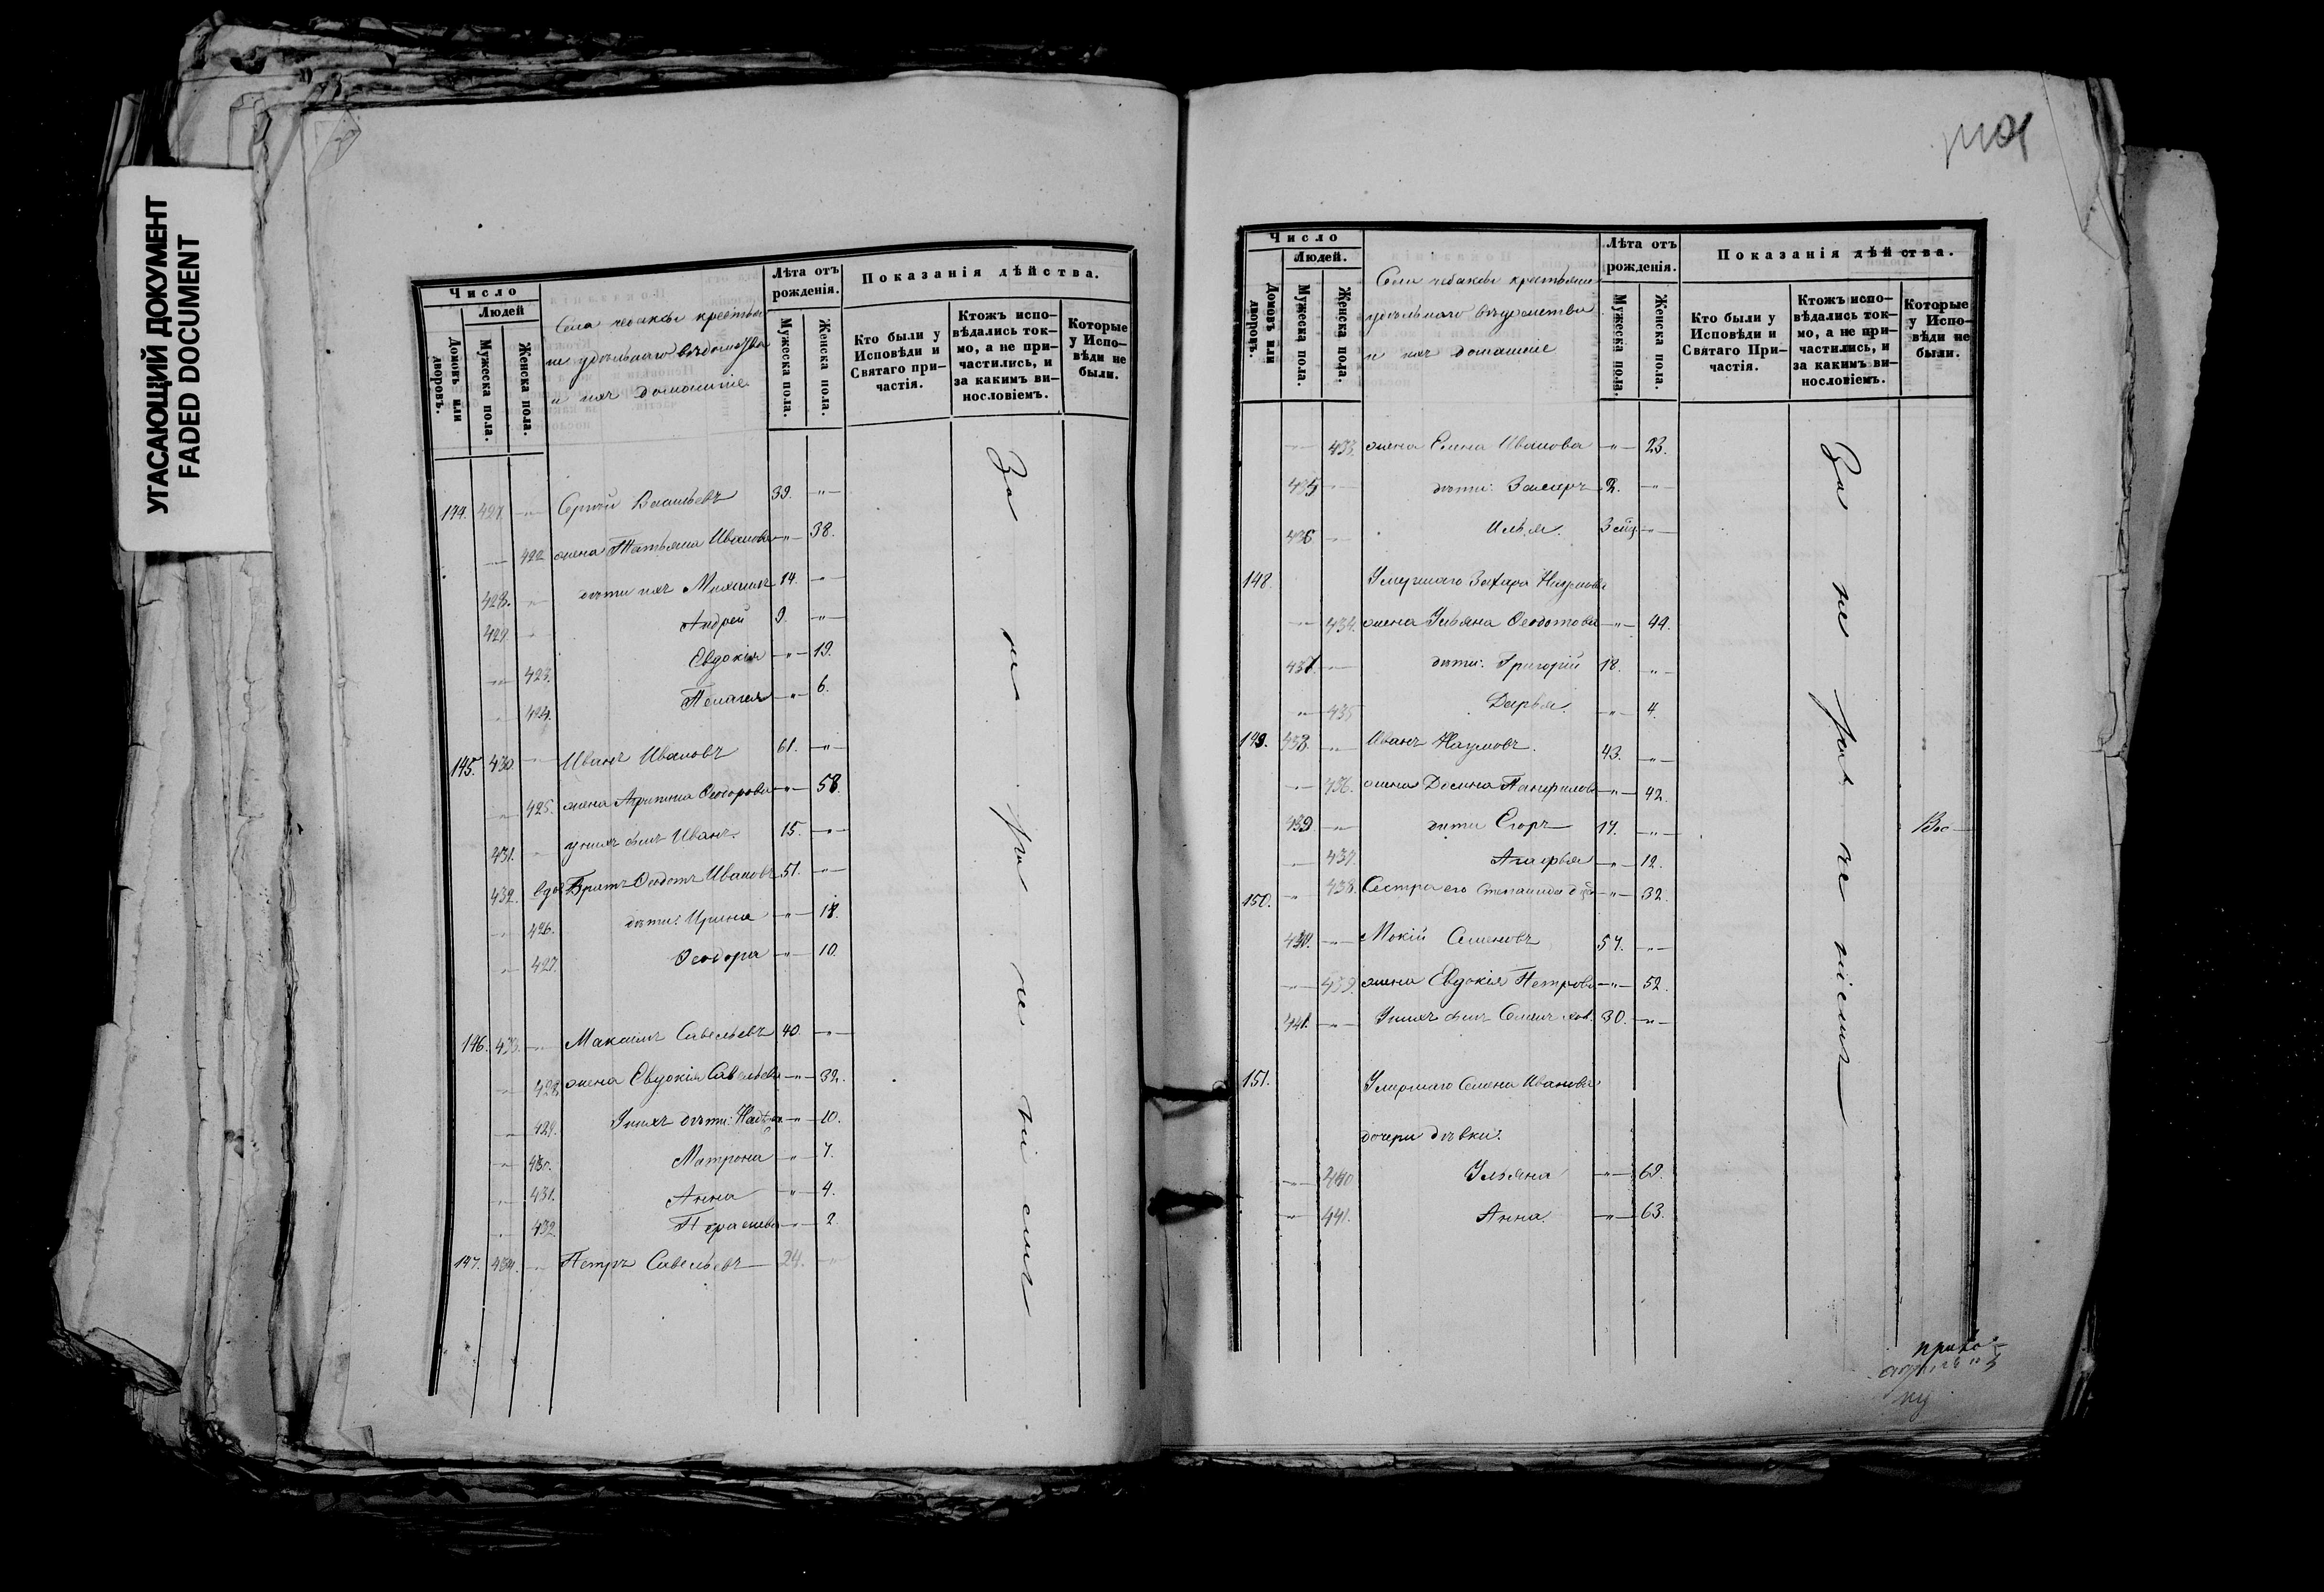 УГАСАЮЩИЙ ДОКУМЕНТ
FADED DOCUMENT
Число
Людей
Домовъ или дворовъ.
Мужеска пола.
Женска пола.
Села чебаксы крестья
не удѣльнаго вѣдомства
и ихъ домашніе
Лѣта отъ рожденія.
Мужеска пола.
Женска пола.
Показанія дѣйства.
Кто были у Исповѣди и Святаго при-частія.
Ктожъ испо-вѣдались ток-мо, а не при-частились, и за какимъ ви-нословіемъ.
Которые у Испо-вѣди не были.
144. 427. Сергѣй Васильевъ 39.
422 жена Татьяна Иванова 38.
428. дѣти ихъ Михаилъ 14.
429 Андрей 9.
423. Евдокія 19.
424. Пелагея 6.
145. 430. Иванъ Ивановъ 61.
425. жена Агрипина Ѳеодорова 58.
431. у нихъ сынъ Иванъ. 15.
432. вдов Братъ Ѳеодотъ Ивановъ 51.
426. дѣти: Ирина 18.
427. Ѳеодора 10.
146. 433. Максимъ Савельевъ 40.
428 жена Евдокія Савельева 32.
429. У нихъ дѣти: 10.
430. Матрона 7.
431. Анна 4.
432 Парасковья 2.
147. 434. Петръ Савельевъ 24.
За не
Число
Людей.
Домовъ или дворовъ.
Мужеска пола.
Женска пола.
Села чебаксы крестьяне
удѣльнаго вѣдомства
и ихъ домашніе
Лѣта отъ рожденія.
Мужеска пола.
Женска пола.
Показанія дѣйства.
Кто были у Исповѣди и Святаго При-частія.
Ктожъ испо-вѣдались ток-мо, а не при-частились, и за какимъ ви-нословіемъ.
Которые у Испо-вѣди не были.
433. жена Елена Иванова 23.
435 дѣти: 2.
436 Илья. 3
148. Умершаго Захара Наумова
434. жена Ульяна Ѳеодотова 44.
437 дѣти: Григорій 18.
435 Дарья. 4.
149. 438. Иванъ Наумовъ. 43.
436. жена Домна Панфилова 42.
439 дѣти Егоръ 17.
437. Агафья 12.
150. 438. Сестра его Степанида 32.
440. Мокій Семеновъ 57.
439. жена Евдокія Петрова 52.
441. У нихъ сынъ Семенъ хол. 30.
151. Умершаго Семена Иванова
дочери дѣвки:
440 Ульяна 69.
441. Анна. 63.
За не